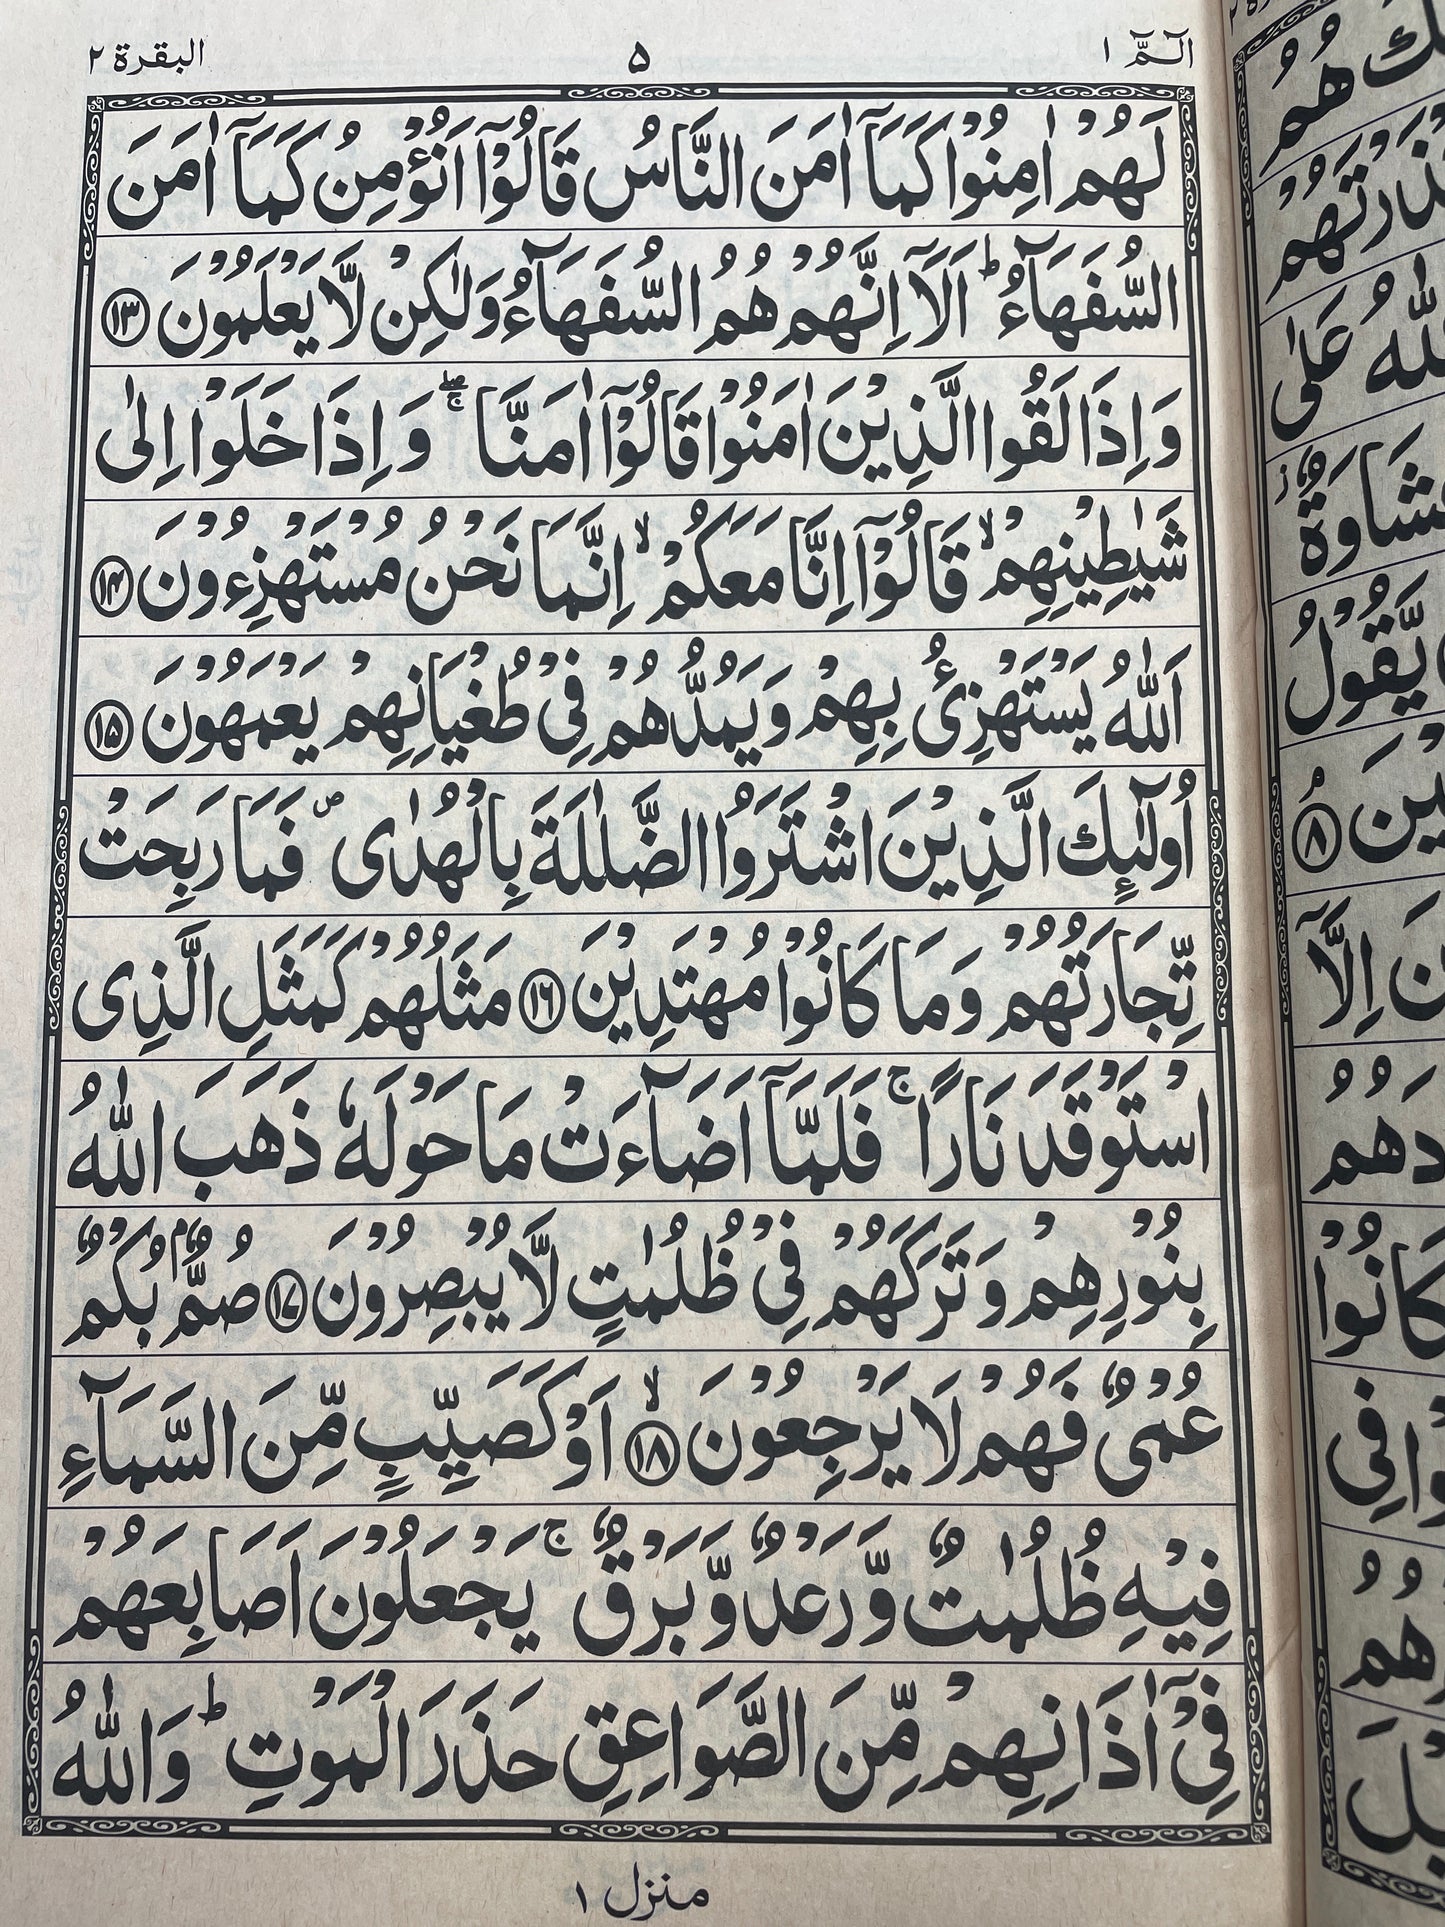 الٓمّٓ ١
٥
البقرة ٢
لَهُمْ اٰمِنُوْا كَمَاۤ اٰمَنَ النَّاسُ قَالُوْۤا اَنُؤْمِنُ كَمَاۤ اٰمَنَ
السُّفَهَآءُ ؕ اَلَاۤ اِنَّهُمْ هُمُ السُّفَهَآءُ وَلٰكِنْ لَّا يَعْلَمُوْنَ ۝١٣
وَاِذَا لَقُوا الَّذِيْنَ اٰمَنُوْا قَالُوْۤا اٰمَنَّا ۖۚ وَاِذَا خَلَوْا اِلٰى
شَيٰطِيْنِهِمْ ۙ قَالُوْۤا اِنَّا مَعَكُمْ ۙ اِنَّمَا نَحْنُ مُسْتَهْزِءُوْنَ ۝١٤
اَللّٰهُ يَسْتَهْزِئُ بِهِمْ وَيَمُدُّهُمْ فِيْ طُغْيَانِهِمْ يَعْمَهُوْنَ ۝١٥
اُولٰٓئِكَ الَّذِيْنَ اشْتَرَوُا الضَّلٰلَةَ بِالْهُدٰى ۪ فَمَا رَبِحَتْ
تِّجَارَتُهُمْ وَمَا كَانُوْا مُهْتَدِيْنَ ۝١٦ مَثَلُهُمْ كَمَثَلِ الَّذِى
اسْتَوْقَدَ نَارًا ۚ فَلَمَّاۤ اَضَآءَتْ مَا حَوْلَهٗ ذَهَبَ اللّٰهُ
بِنُوْرِهِمْ وَتَرَكَهُمْ فِيْ ظُلُمٰتٍ لَّا يُبْصِرُوْنَ ۝١٧ صُمٌّۢ بُكْمٌ
عُمْىٌ فَهُمْ لَا يَرْجِعُوْنَ ۙ۝١٨ اَوْ كَصَيِّبٍ مِّنَ السَّمَآءِ
فِيْهِ ظُلُمٰتٌ وَّرَعْدٌ وَّبَرْقٌ ۚ يَجْعَلُوْنَ اَصَابِعَهُمْ
فِيْۤ اٰذَانِهِمْ مِّنَ الصَّوَاعِقِ حَذَرَ الْمَوْتِ ؕ وَاللّٰهُ
منزل ١